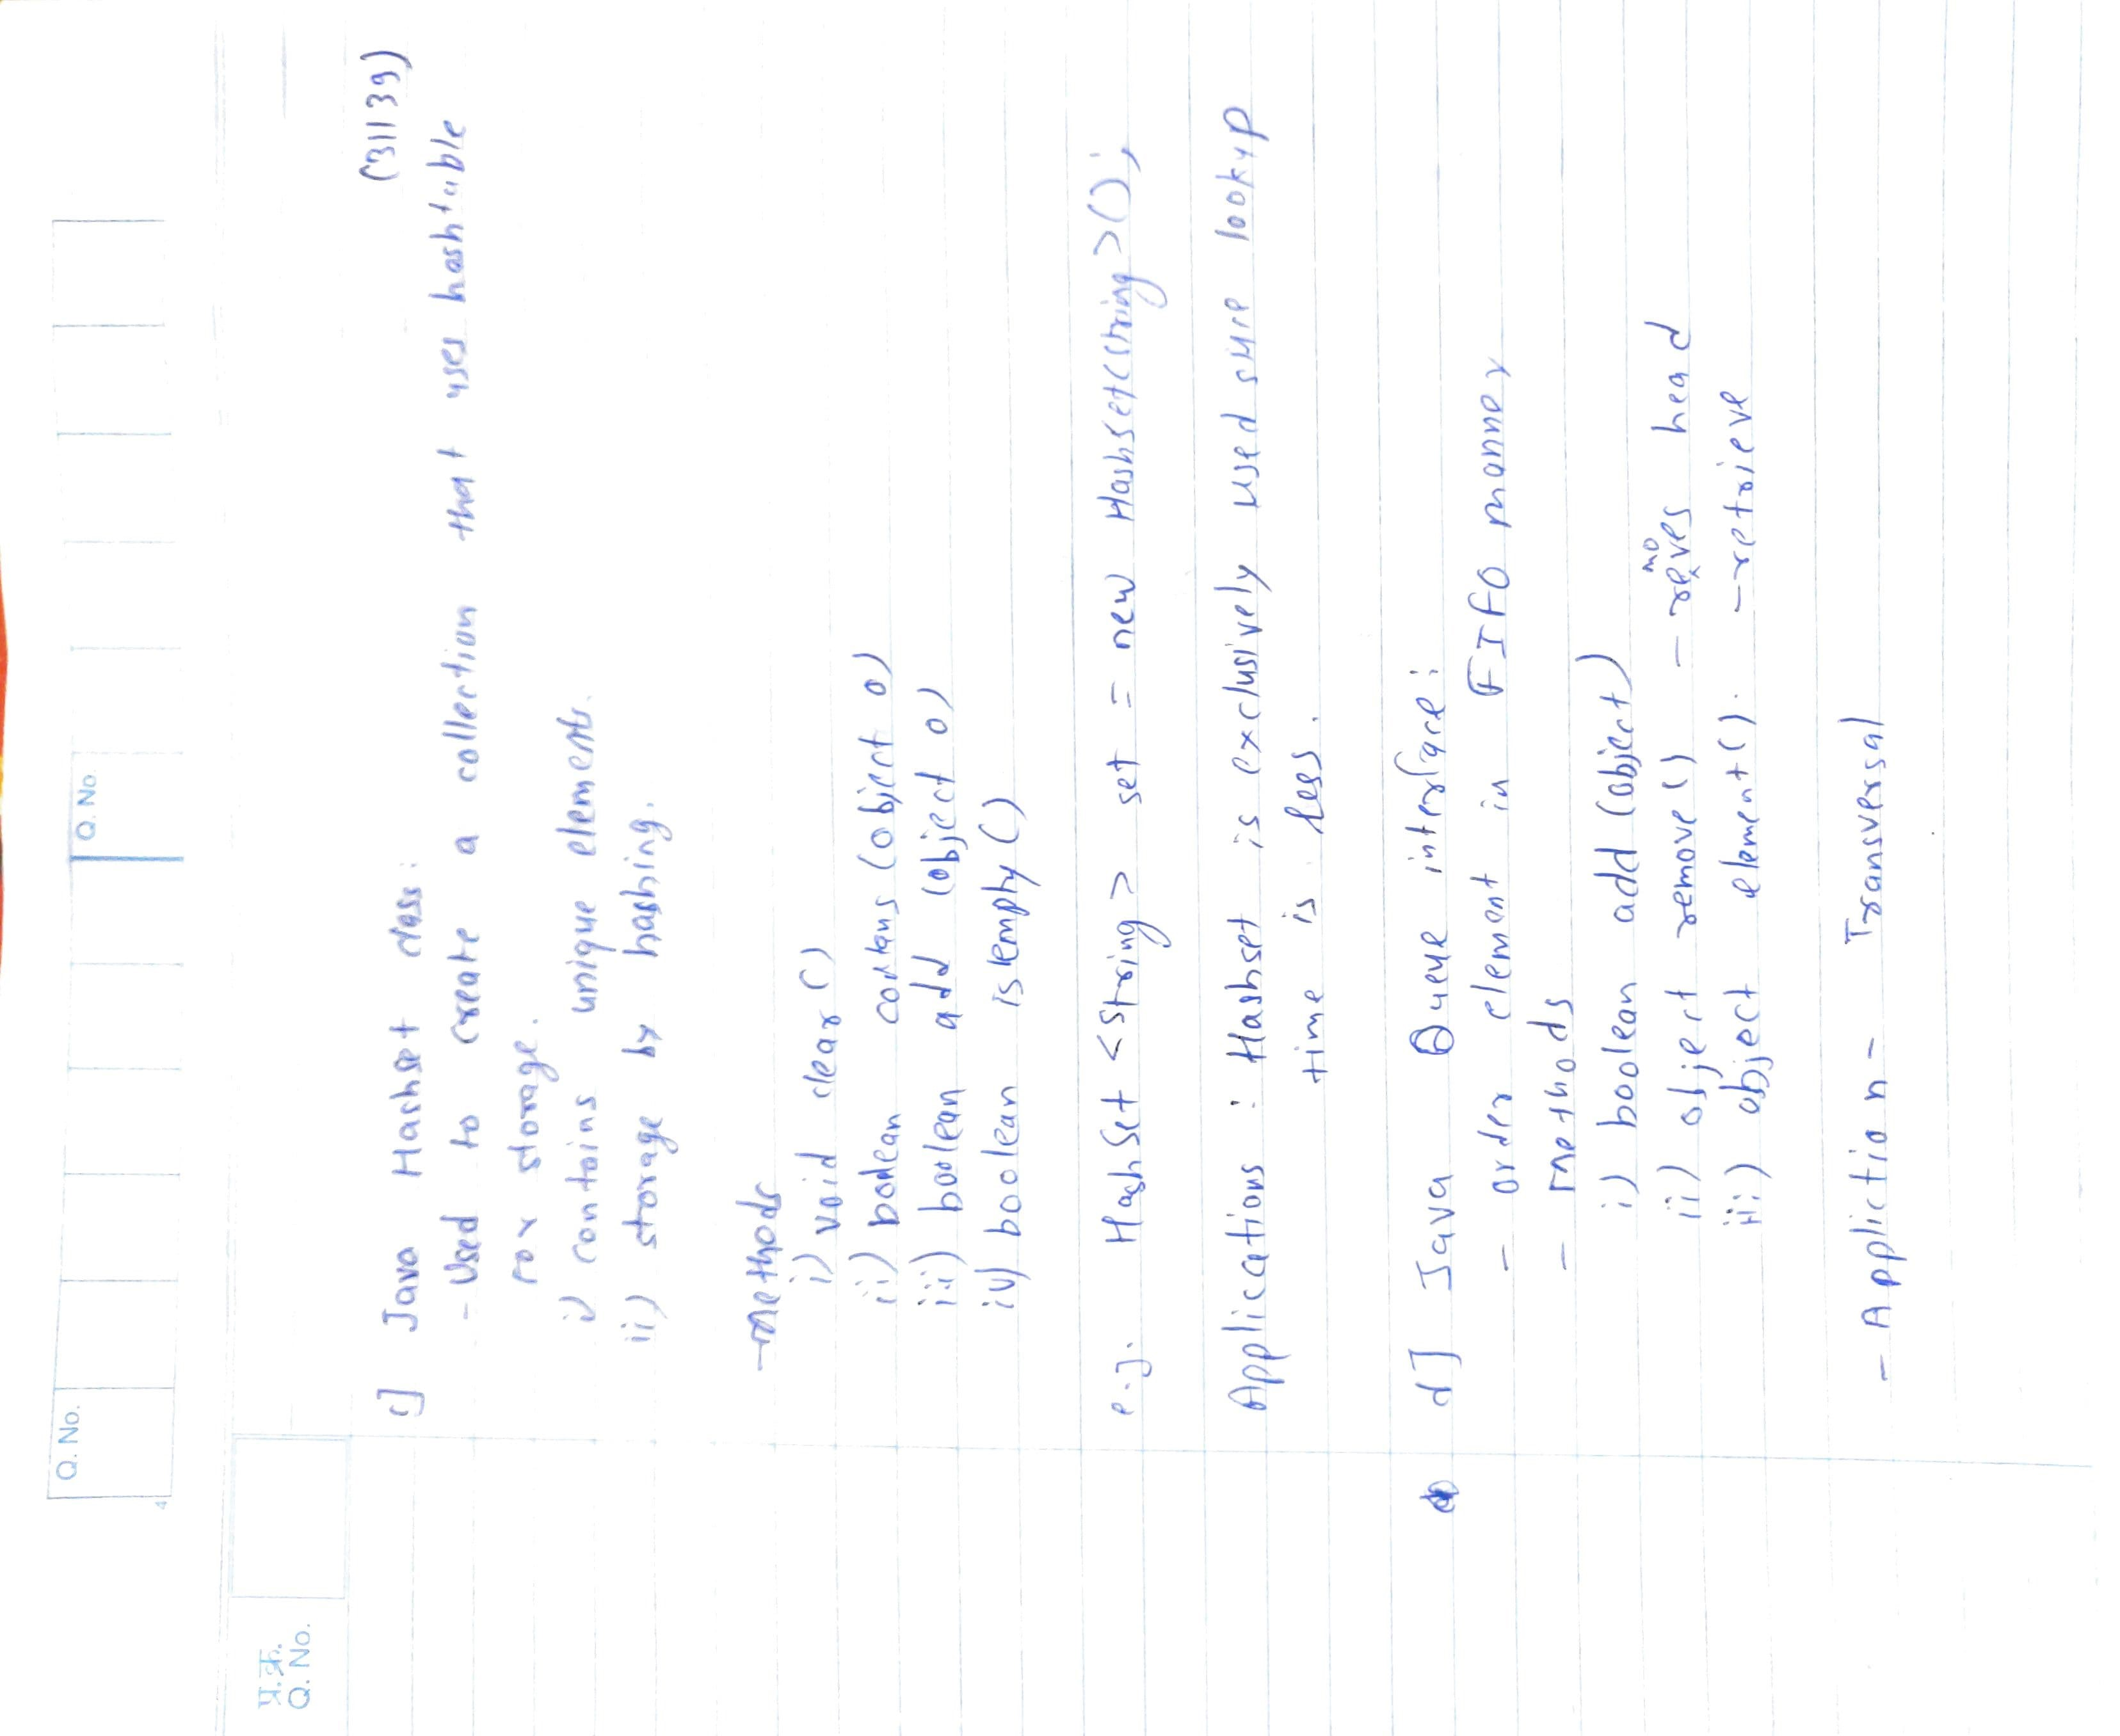 Q. No.
Q. No.
4
प्र.क्र.
Q. No.
(31139)
c] Java Hashset class:
- Used to create a collection that uses hashtable
for storage.
i) contains unique elements.
ii) storage by hashing.
- methods
i) void clear ()
ii) boolean contans (object o)
iii) boolean add (object o)
iv) boolean isempty ()
e.g. HashSet <string> set = new Hashset<string>();
Applications : Hashset is exclusively used sure lookup
time is less.
d] Java Queue interface:
- order element in FIFO manner
- methods
i) boolean add (object)
ii) object remove () - removes head
iii) object element(). - retrieve
- Appliction - Transversal